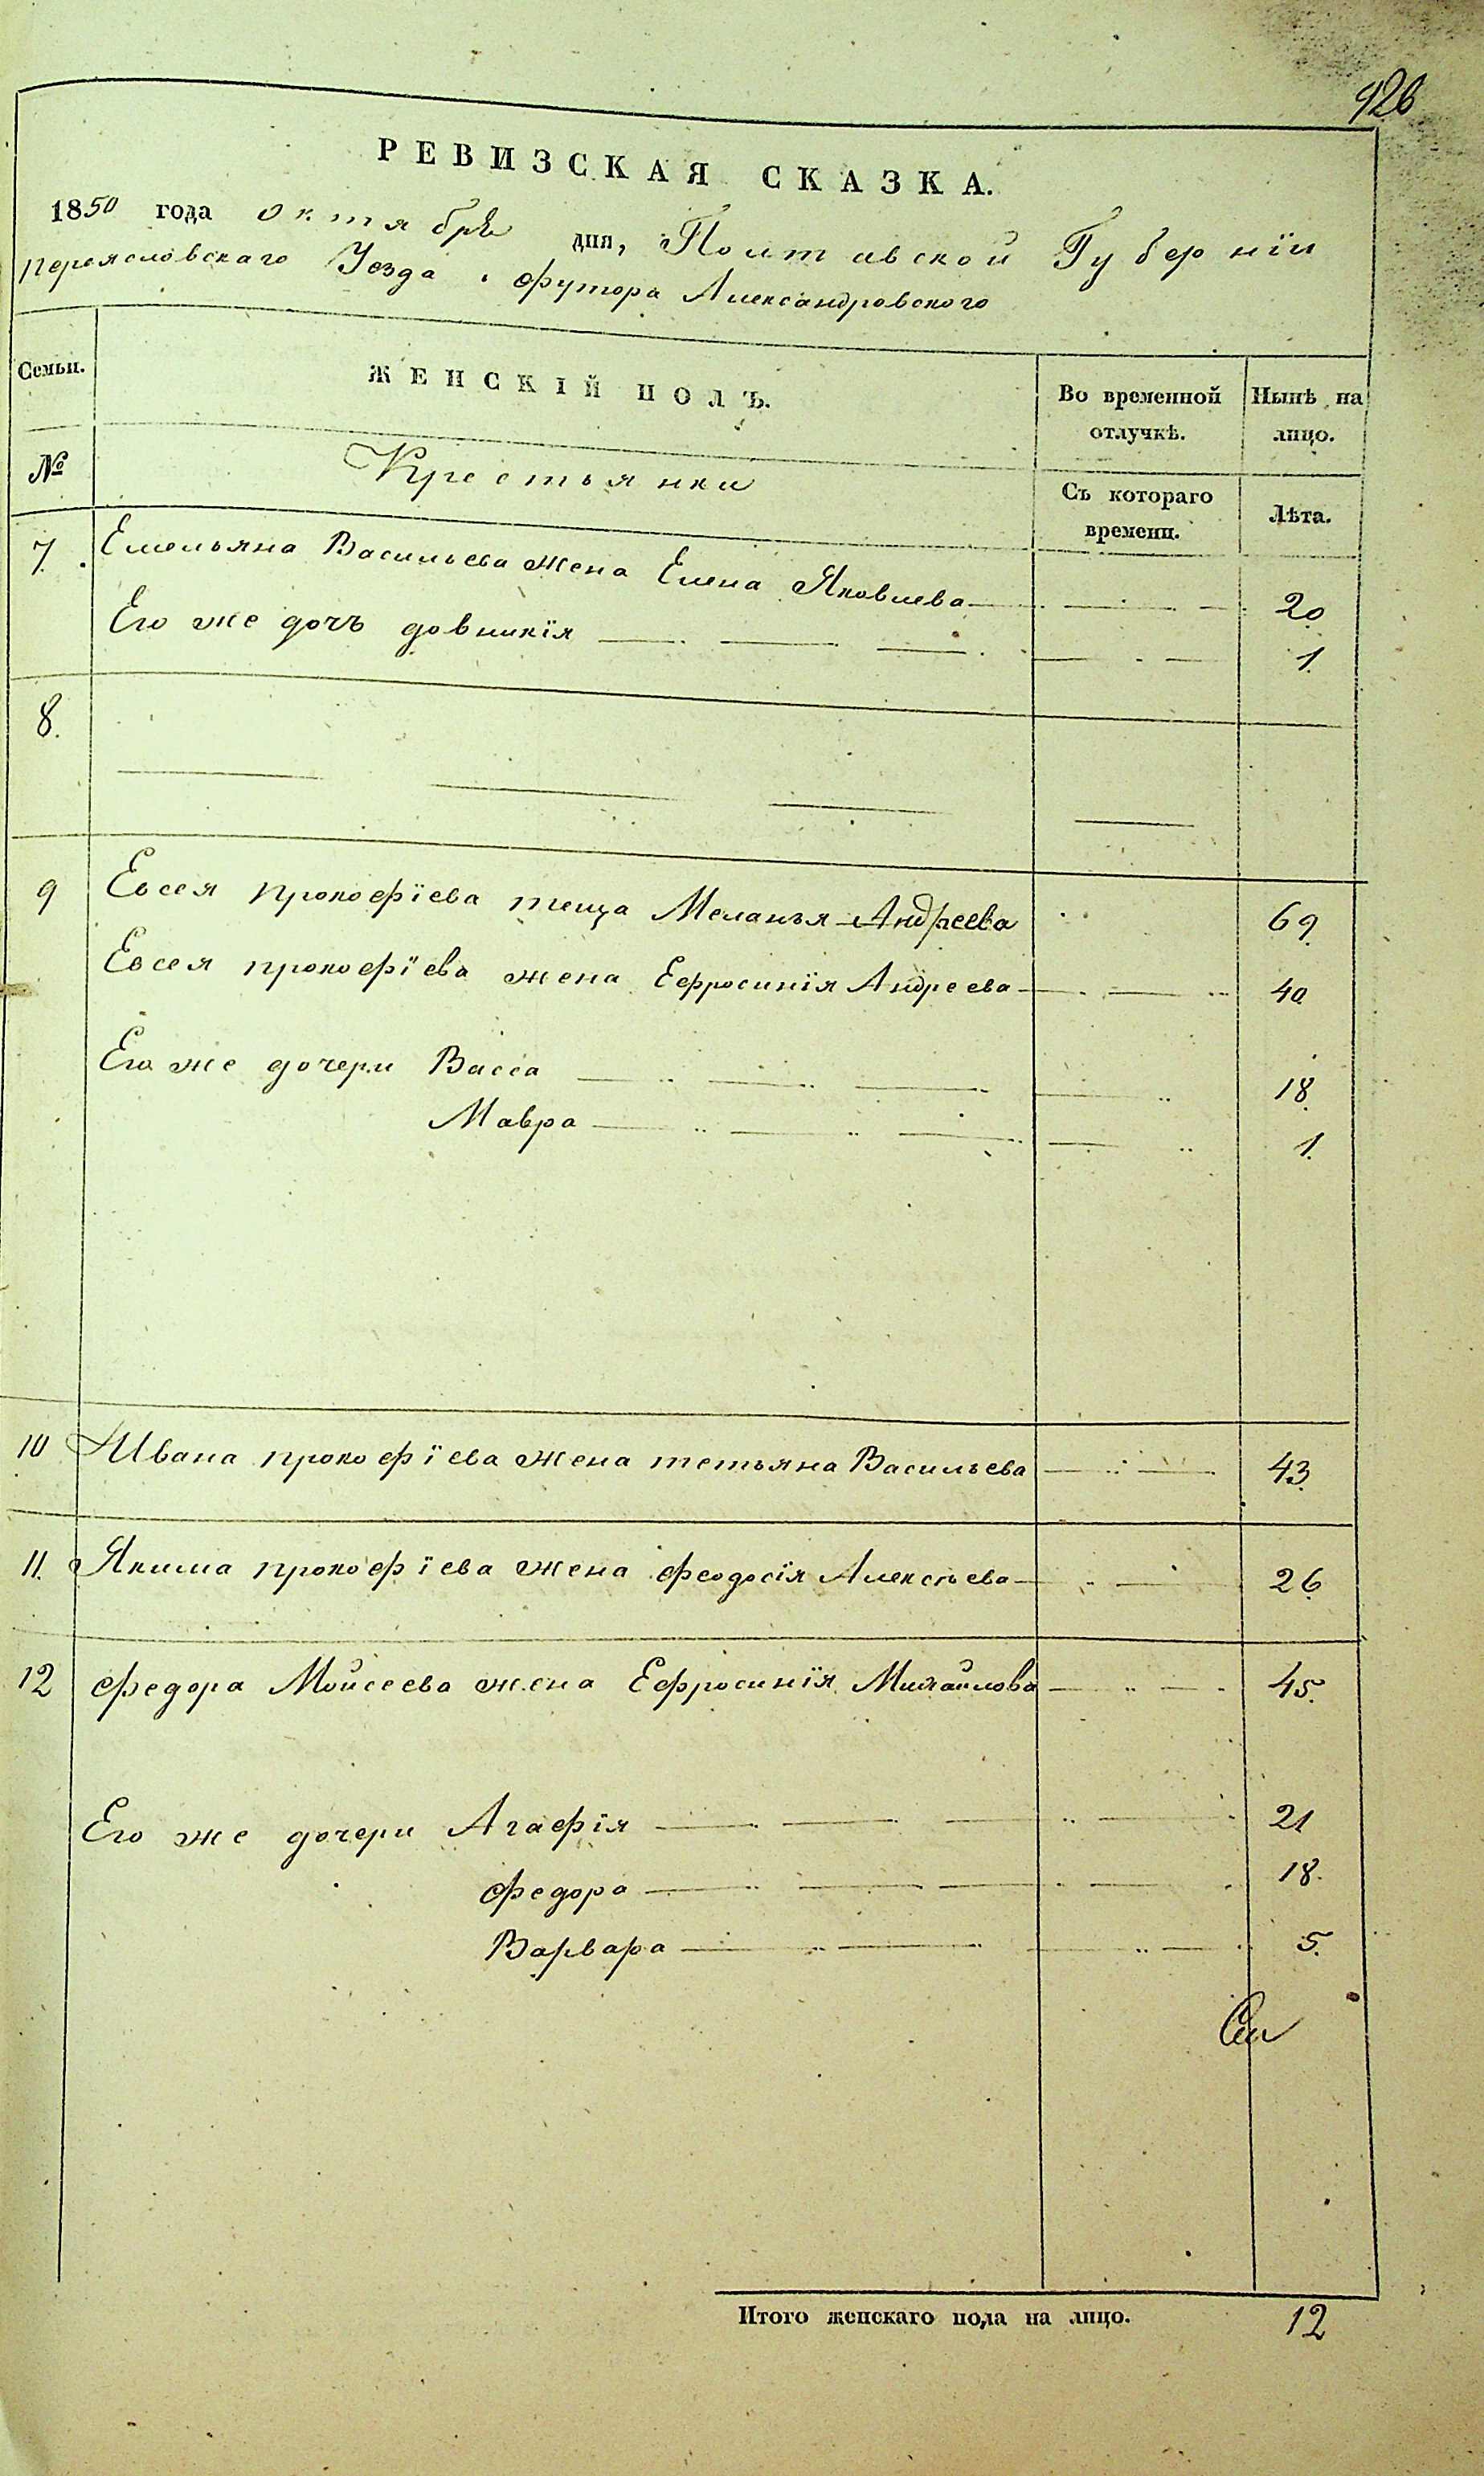 926
РЕВИЗСКАЯ СКАЗКА.
1850 года октября дня, Полтавской Губернїи
переясловскаго Уезда футора Александровского
Семьи. ЖЕНСКІЙ ПОЛЪ. Во временной отлучкѣ. Нынѣ на лицо.
№ Крестьянки Съ котораго времени. Лѣта.
7. Емельяна Васильева жена Елена Яковлева 20
Его же дочъ довникїя 1.
8.
9 Евсея прокофїева теща Меланья Андреева 69.
Евсея прокофїева жена Ефросинїя Андреева 40
Его же дочери Васса 18.
Мавра 1.
10 Ивана прокофїева жена тетьяна Васильева 43.
11. Якима прокофїева жена феодосїя Алексѣева 26
12 федора Мойсеева жена Ефросинїя Михайлова 45.
Его же дочери Агафїя 21
федора 18.
Варвара 5.
Итого женскаго пола на лицо. 12